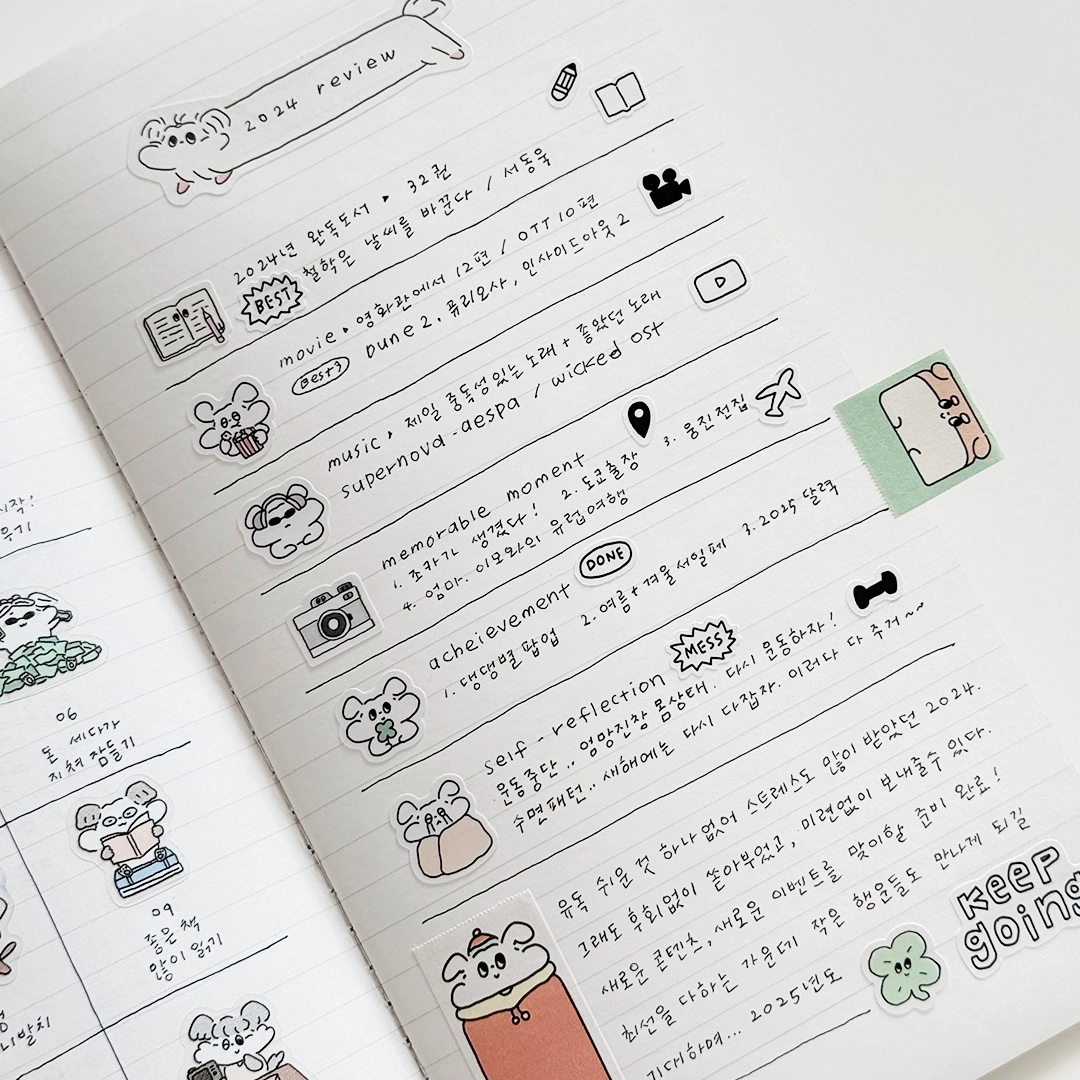 2024 review
2024년 완독도서 ▸ 32권
BEST 철학은 날씨를 바꾼다 / 서동욱
movie ▸ 영화관에서 12편 / OTT 10편
Best3 Dune 2. 퓨리오사, 인사이드아웃 2
music ▸ 제일 중독성있는 노래 + 좋았던 노래
supernova - aespa / wicked ost
memorable moment
1. 조카가 생겼다! 2. 도쿄출장 3. 웅진전집
4. 엄마. 이모와의 유럽여행
acheievement DONE
1. 댕댕별 팝업 2. 여름+겨울 서일페 3. 2025 달력
self - reflection MESS
운동중단.. 엉망진창 몸상태. 다시 운동하자!
수면패턴.. 새해에는 다시 다잡자. 이러다 다 주거~~
유독 쉬운 것 하나 없어 스트레스도 많이 받았던 2024.
그래도 후회없이 쏟아부었고, 미련없이 보내줄수 있다.
새로운 콘텐츠, 새로운 이벤트를 맞이할 준비 완료!
최선을 다하는 가운데 작은 행운들도 만나게 되길
기대하며... 2025년도
KEEP
going
06
돈 세다가
지쳐 잠들기
09
좋은 책
많이 읽기